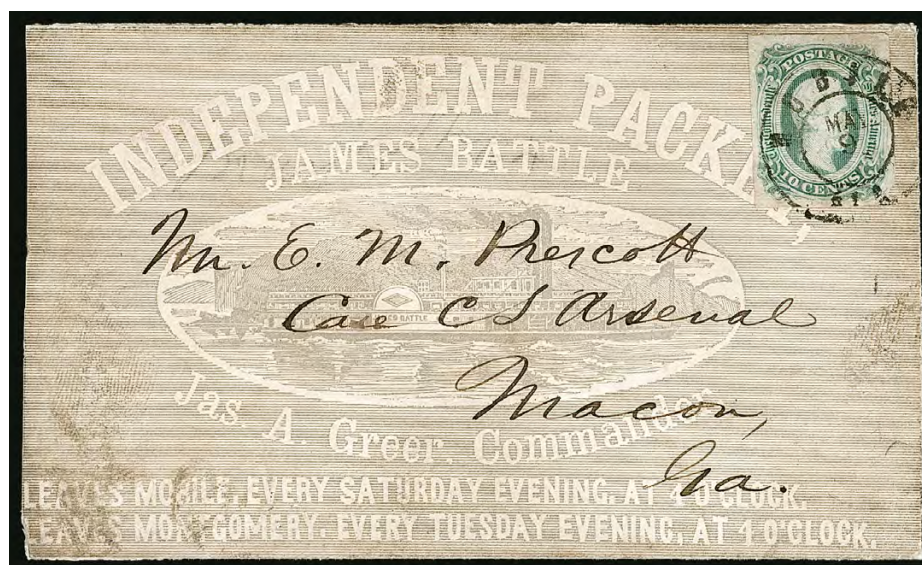 INDEPENDENT PACKET,
JAMES BATTLE
POSTAGE
MOBILE
MAY
10 CENTS
ALA
Mr. E. M. Prescott
Care C S Arsenal
BATTLE
Macon,
Ga.
Jas. A. Greer, Commander
LEAVES MOBILE, EVERY SATURDAY EVENING, AT O'CLOCK.
LEAVES MONTGOMERY, EVERY TUESDAY EVENING, AT 4 O'CLOCK.